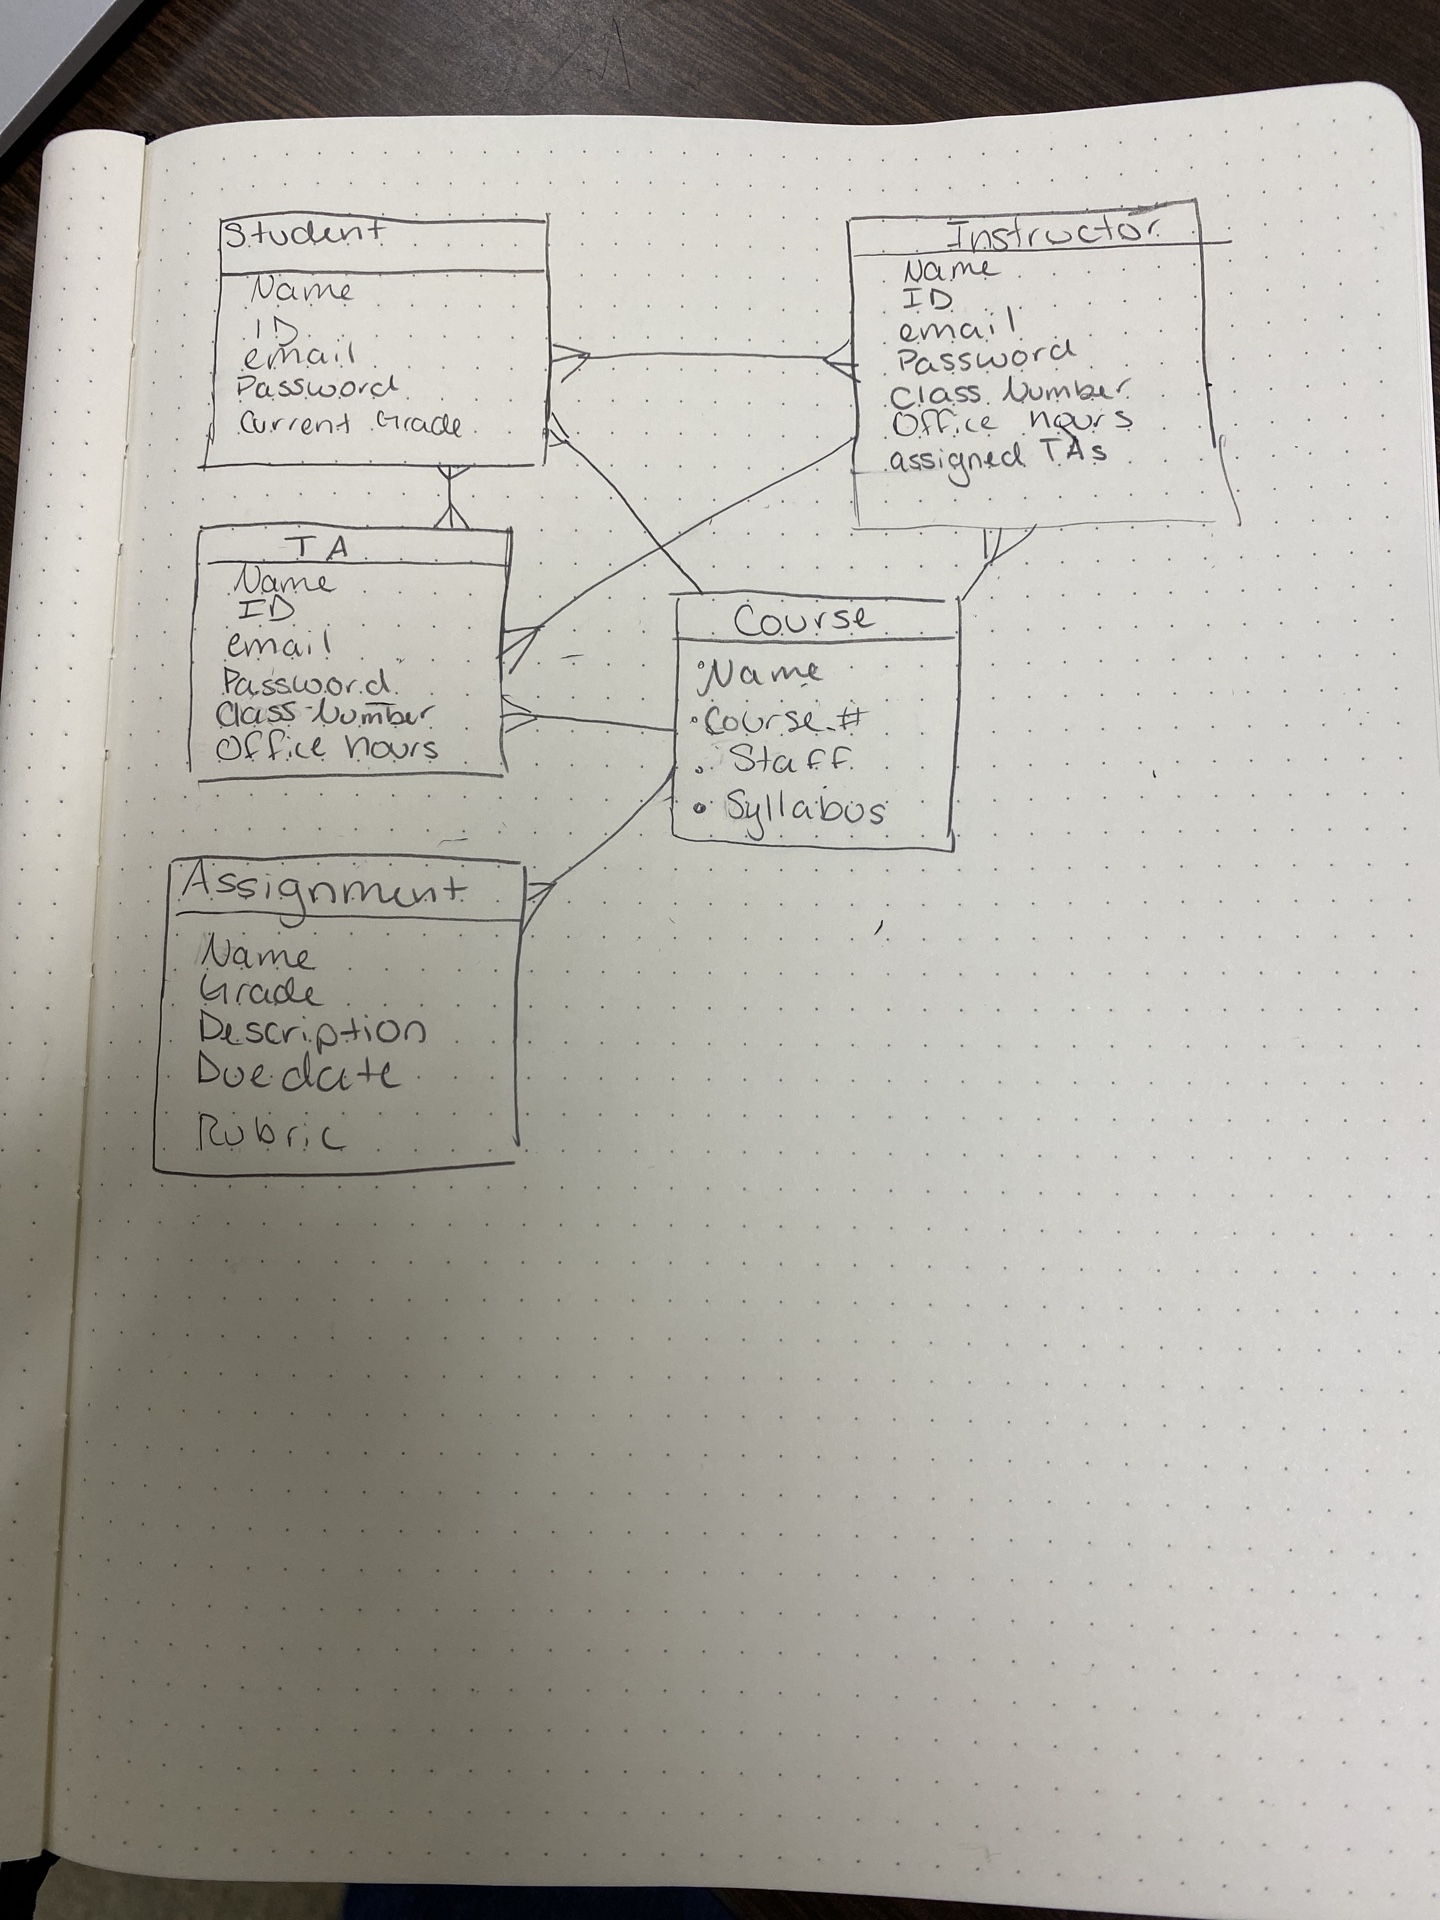 Student
Name
ID
email
Password
Current Grade
Instructor
Name
ID
email
Password
Class Number
Office hours
assigned TAs
TA
Name
ID
email
Password
Class Number
Office hours
Course
Name
Course #
Staff
Syllabus
Assignment
Name
Grade
Description
Due date
Rubric